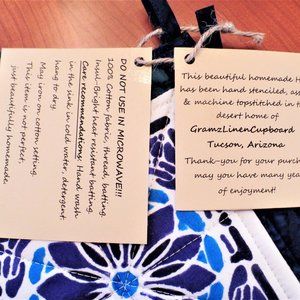 DO NOT USE IN MICROWAVE!!!
100% Cotton fabric, thread, batting,
Insul-Bright heat resistent batting.
Care recommendations: Hand wash
in the sink in cold water, detergent
hang to dry.
May iron on cotton setting.
This item is not perfect,
just beautifully homemade.
This beautiful homemade
has been hand stenciled,
& machine topstitched in
desert home of
GramzLinenCupboard
Tucson, Arizona
Thank-you for your
may you have many
of enjoyment!